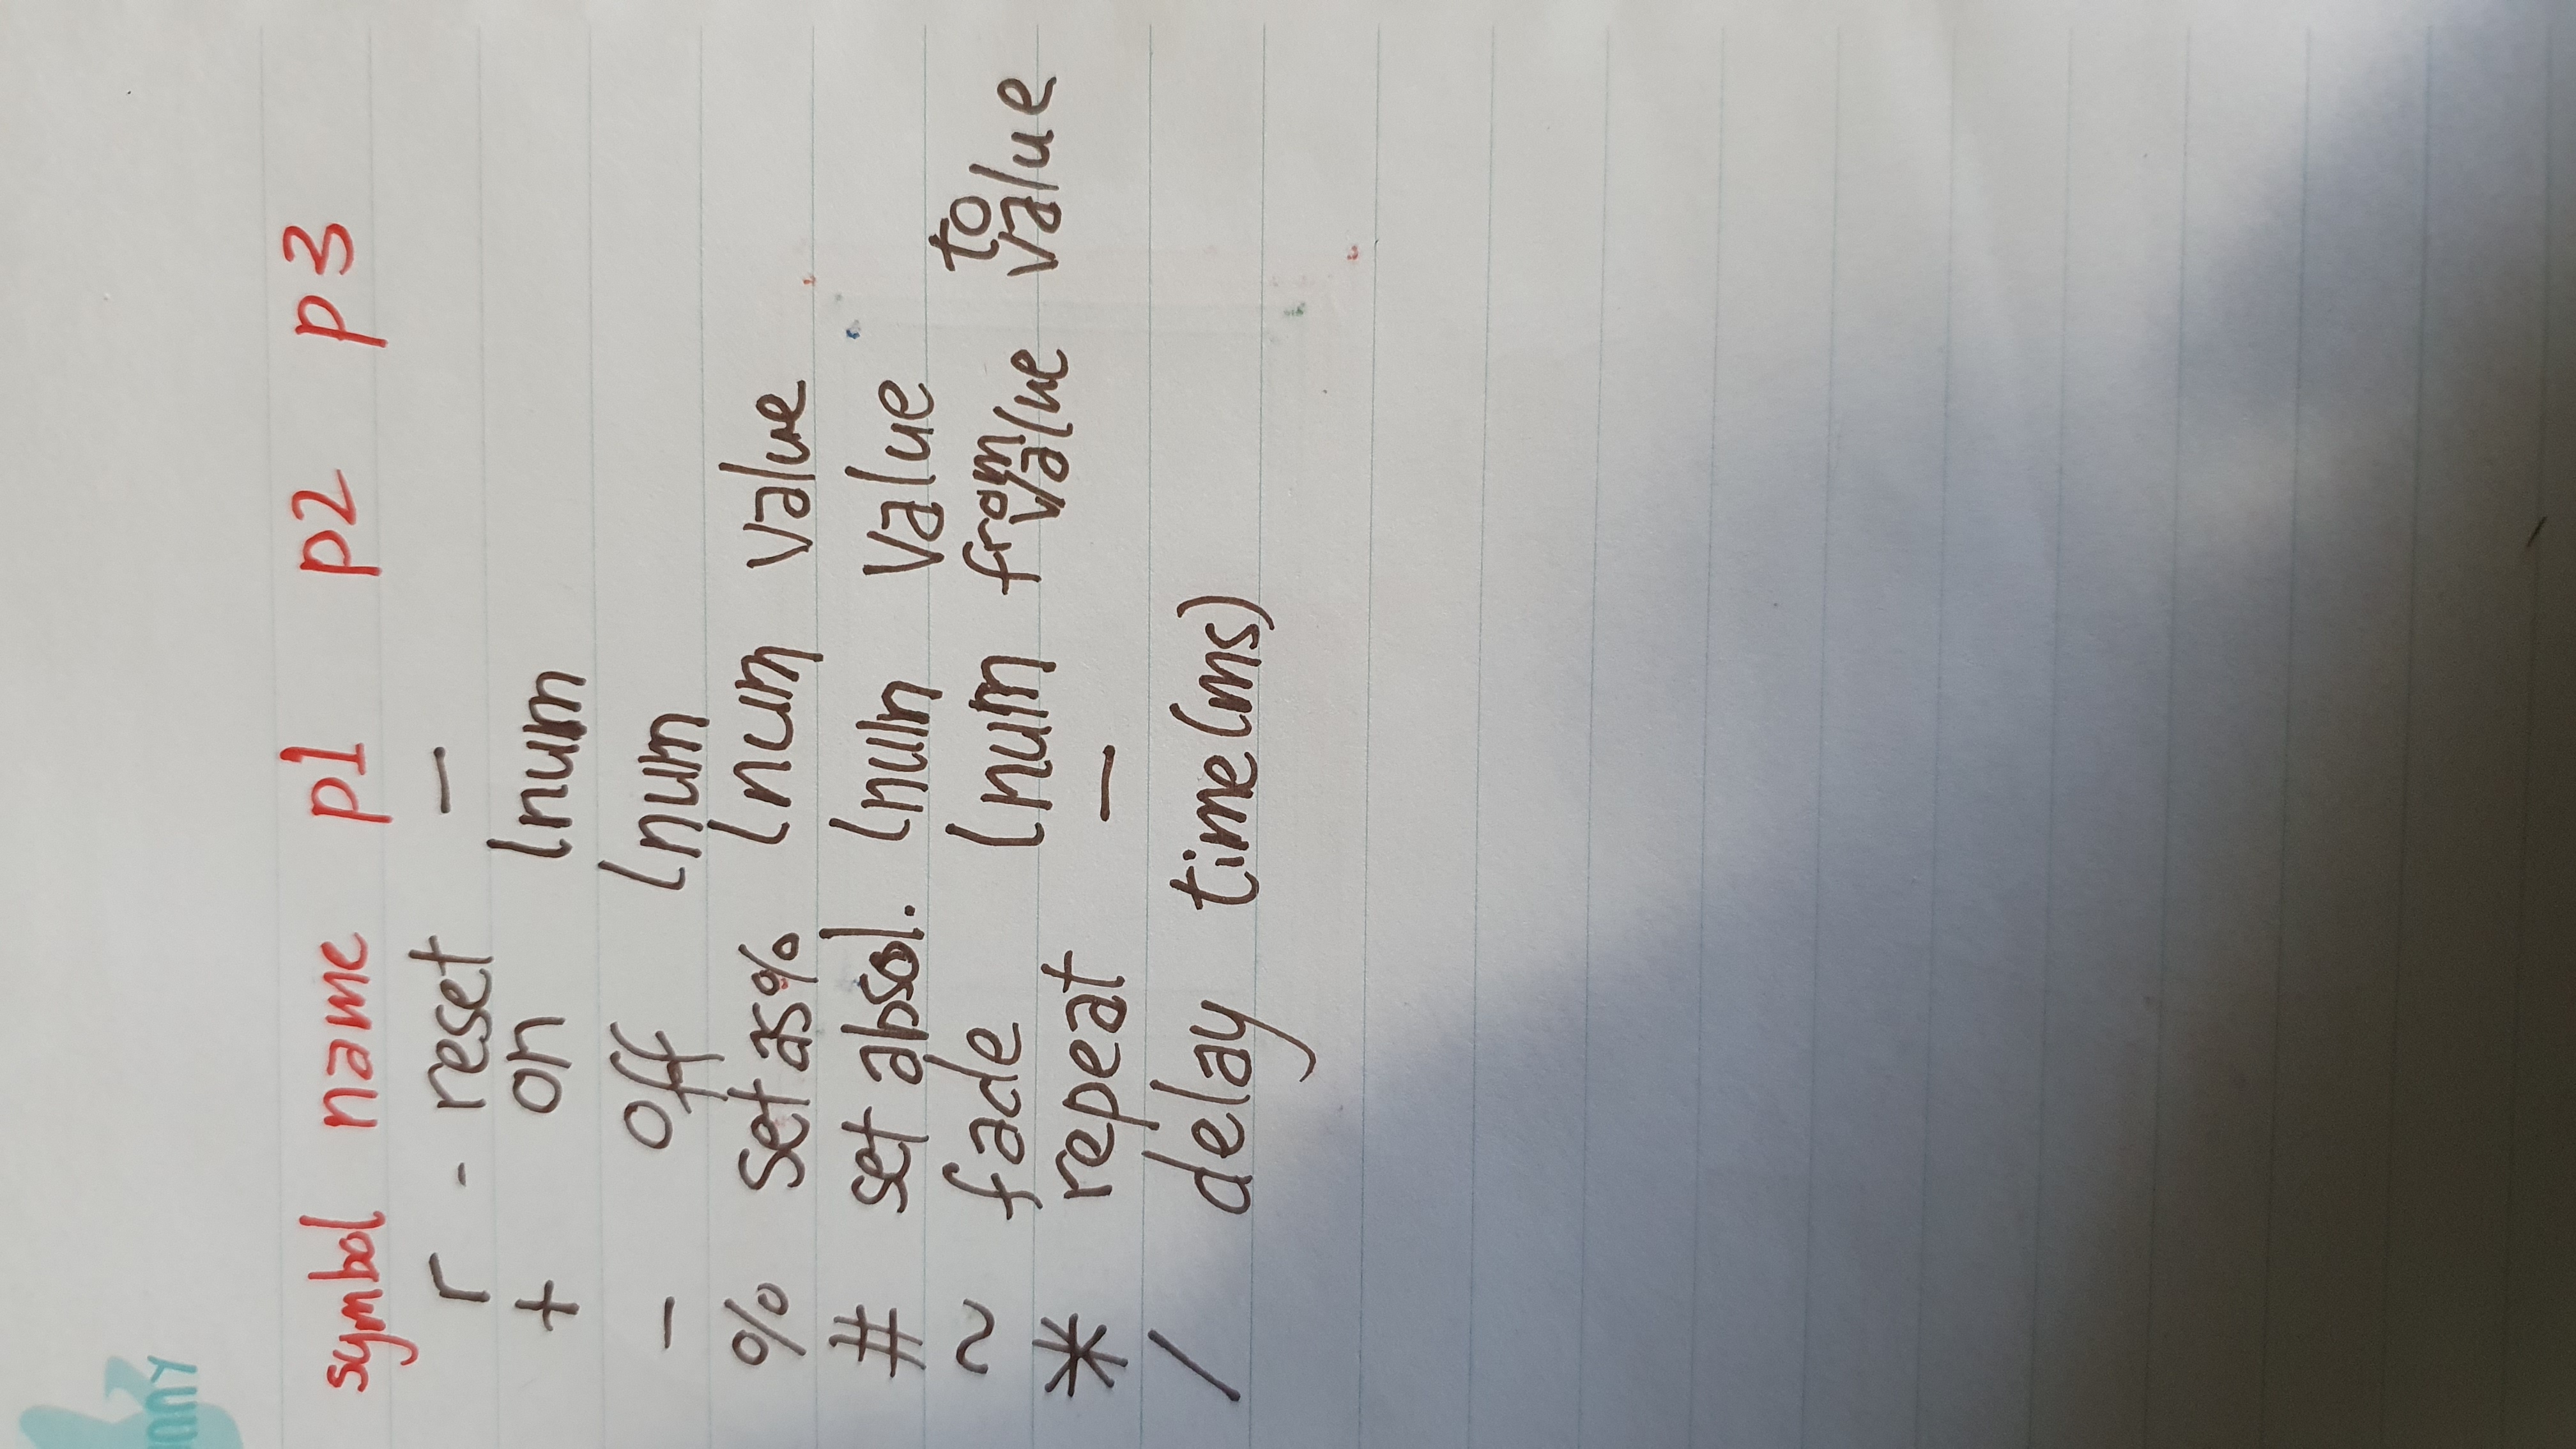 nny
symbol name p1 p2 p3
r - reset —
+ on lnum
- off lnum
% set as % lnum value
# set absol. lnum value
~ fade lnum from value to value
* repeat —
/ delay time(ms)